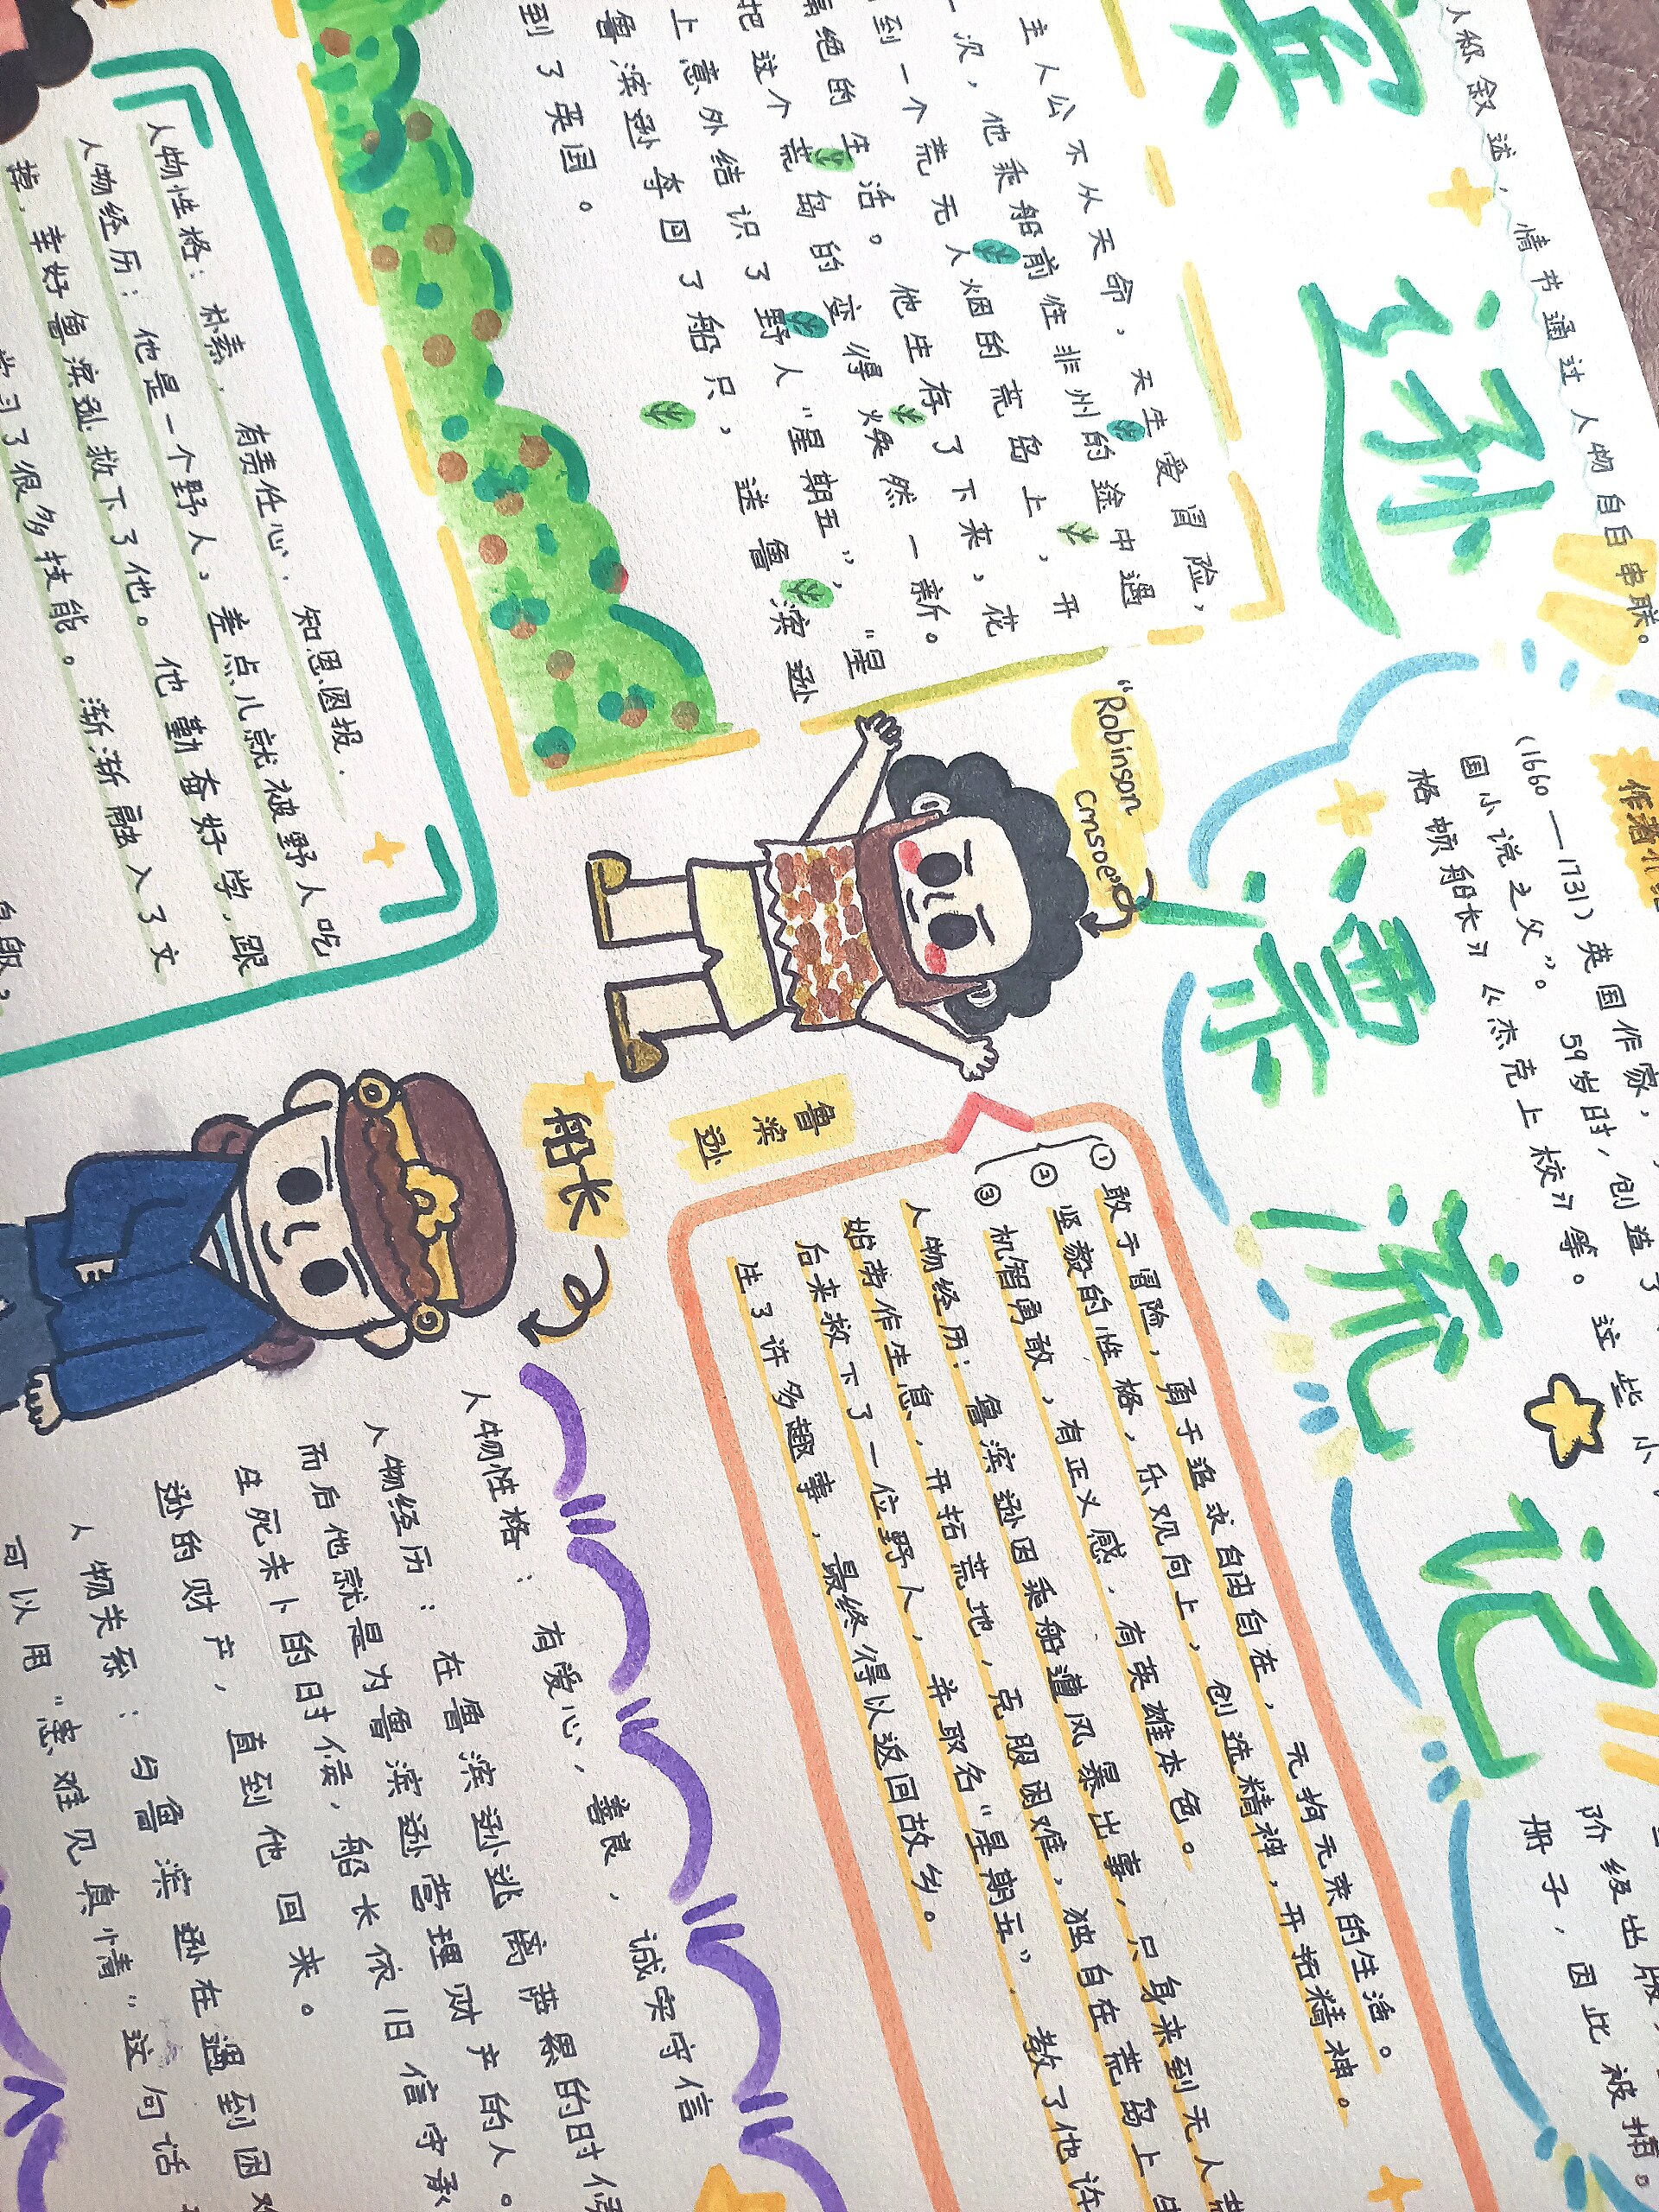 人称叙述，情节通过人物自白串联。
宾 孙 漂流记
(1660——1731)英国作家，
国小说之父"。59岁时，创造了
格顿船长》《杰克上校》等。这些小
阶级出版
册子，因此被捕。
主人公不从天命，天生爱冒险，
一次，他乘船前往非洲的途中遇
到一个荒无人烟的荒岛上，开
隔绝的生活。他生存了下来，花
把这个荒岛的变得焕然一新。
上意外结识了野人"星期五"，"星
鲁滨逊夺回了船只，送鲁滨逊
到了英国。
"Robinson
Crnsoe"
鲁滨逊
①敢于冒险，勇于追求自由自在，无拘无束的生活。
②坚毅的性格，乐观向上，创造精神，开拓精神。
③机智勇敢，有正义感，有英雄本色。
人物经历：鲁滨逊因乘船遭风暴出事，只身来到无人荒
始劳作生息，开拓荒地，克服困难，独自在荒岛上生
后来救下了一位野人，并取名"星期五"．教了他许
生了许多趣事，最终得以返回故乡。
人物性格：朴素，有责任心，知恩图报．
人物经历：他是一个野人，差点儿就被野人吃
掉，幸好鲁滨逊救下了他。他勤奋好学，跟
学习了很多技能。渐渐融入了文
船长
人物性格：有爱心，善良，诚实守信
人物经历：在鲁滨逊逃离萨累的时候
而后他就是为鲁滨逊营理财产的人。
生死未卜的时候，船长依旧信守承
逊的财产，直到他回来。
人物关系：与鲁滨逊在遇到困难
可以用"患难见真情"这句话